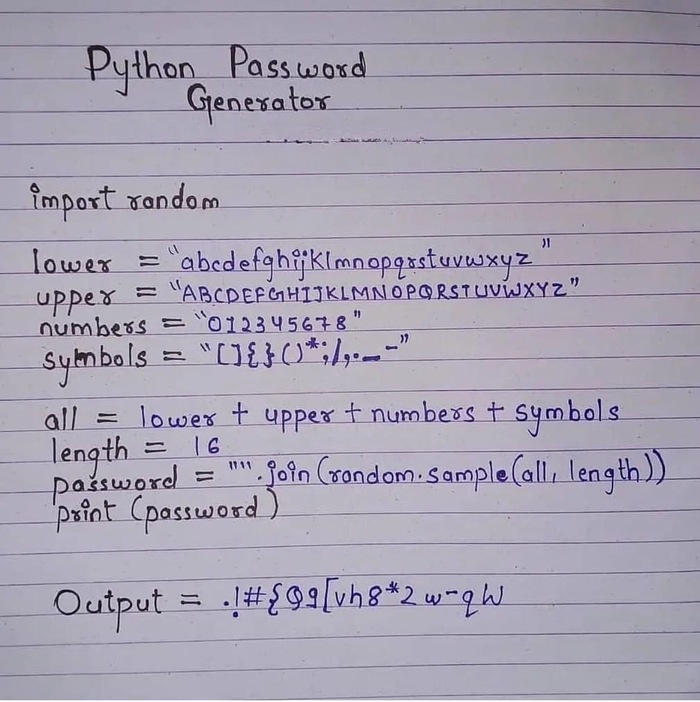 Python Password
Generator
import random
lower = "abcdefghijklmnopqrstuvwxyz"
upper = "ABCDEFGHIJKLMNOPQRSTUVWXYZ"
numbers = "012345678"
symbols = "[]{}()*;/,._-"
all = lower + upper + numbers + symbols
length = 16
password = "".join(random.sample(all, length))
print (password)
Output = .!#{Q9[vh8*2w-qW